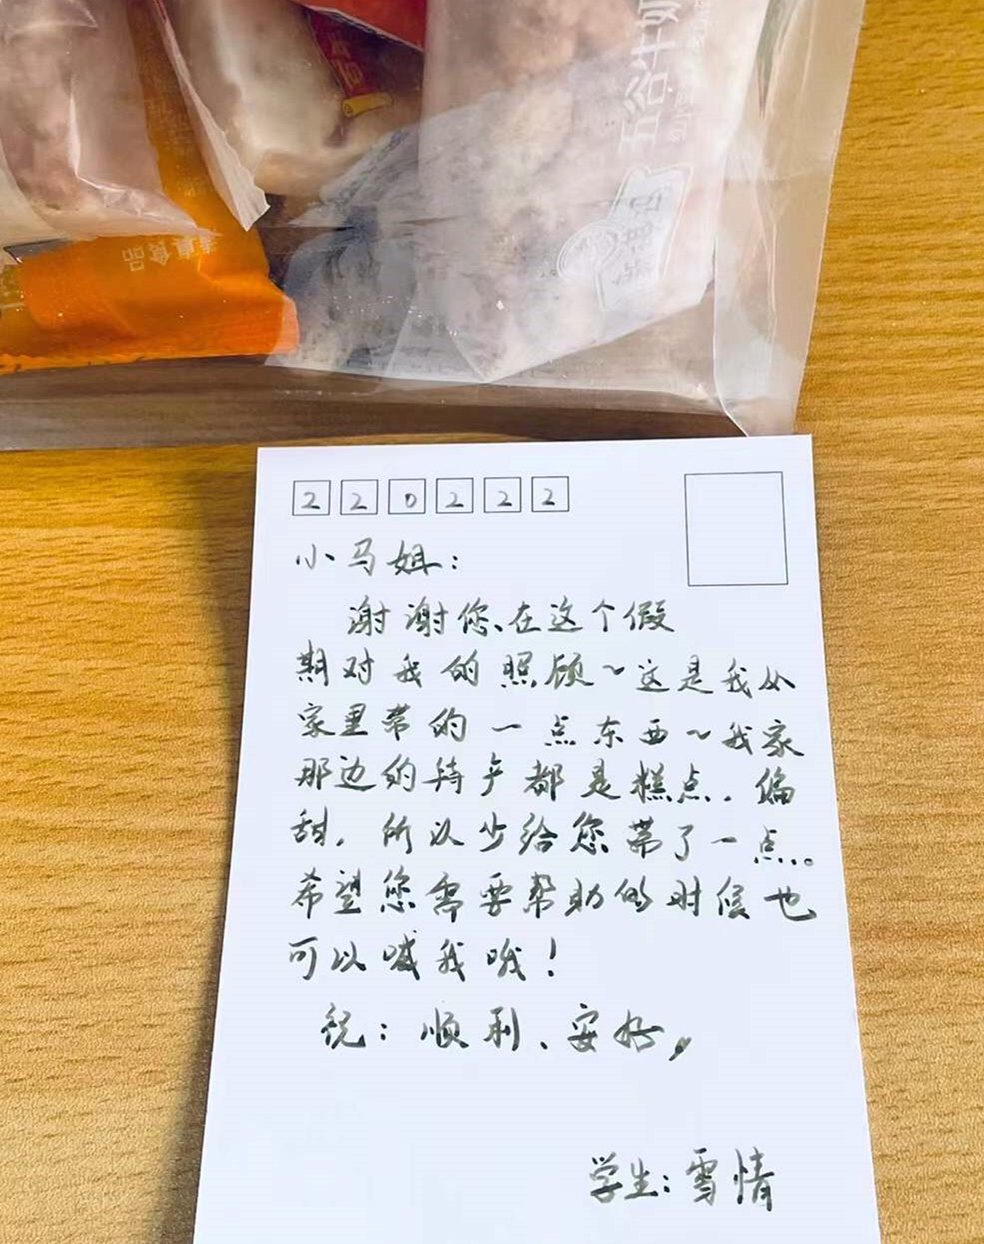 五谷牛奶
清真食品
220222
小马姐:
谢谢您、在这个假
期对我的照顾~这是我从
家里带的一点东西~我家
那边的特产都是糕点.偏
甜,所以少给您带了一点...。
希望您需要帮助的时候也
可以喊我哦!
祝:顺利、安好,
学生:雪情